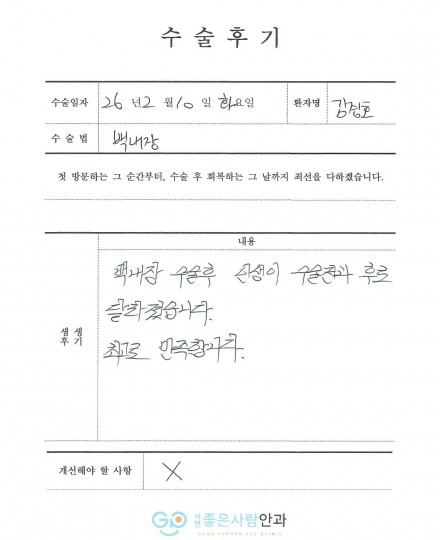 수 술 후 기
수술일자 26 년 2 월 10 일 화요일 환자명 김정호
수 술 법 백내장
첫 방문하는 그 순간부터, 수술 후 회복하는 그 날까지 최선을 다하겠습니다.
내용
생 생
후 기
백내장 수술후 인생이 수술전과 후로
달라졌습니다.
최고로 만족합니다.
개선해야 할 사항 X
서울 좋은사람안과
GOOD PERSON EYE CLINIC